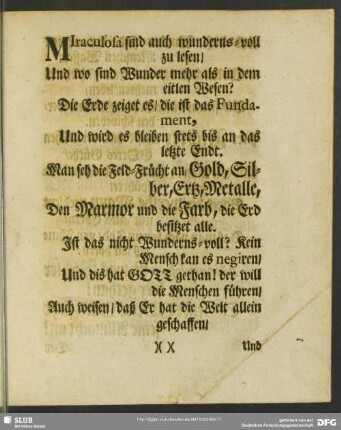 MIraculosa sind auch wunderns-voll
zu lesen/
Und wo sind Wunder mehr als in dem
eitlen Wesen?
Die Erde zeiget es/ die ist das Funda-
ment,
Und wird es bleiben stets bis an das
letzte Endt.
Man seh die Feld-Frücht an/ Gold, Sil-
ber, Ertz, Metalle,
Den Marmor und die Farb, die Erd
besitzet alle.
Ist das nicht Wunderns-voll? Kein
Mensch kan es negiren/
Und dis hat GOTT gethan! der will
die Menschen führen/
Auch weisen/ daß Er hat die Welt allein
geschaffen/
X X Und
SLUB
Wir führen Wissen.
gefördert von der
Deutschen Forschungsgemeinschaft
DFG